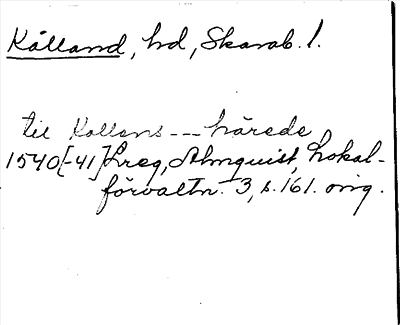 Kålland, hd, Skarab. l.
till Kallens --- härede
1540[-41] Lreg, Almquist, Lokal-
förvaltn. 3, s. 161. orig.